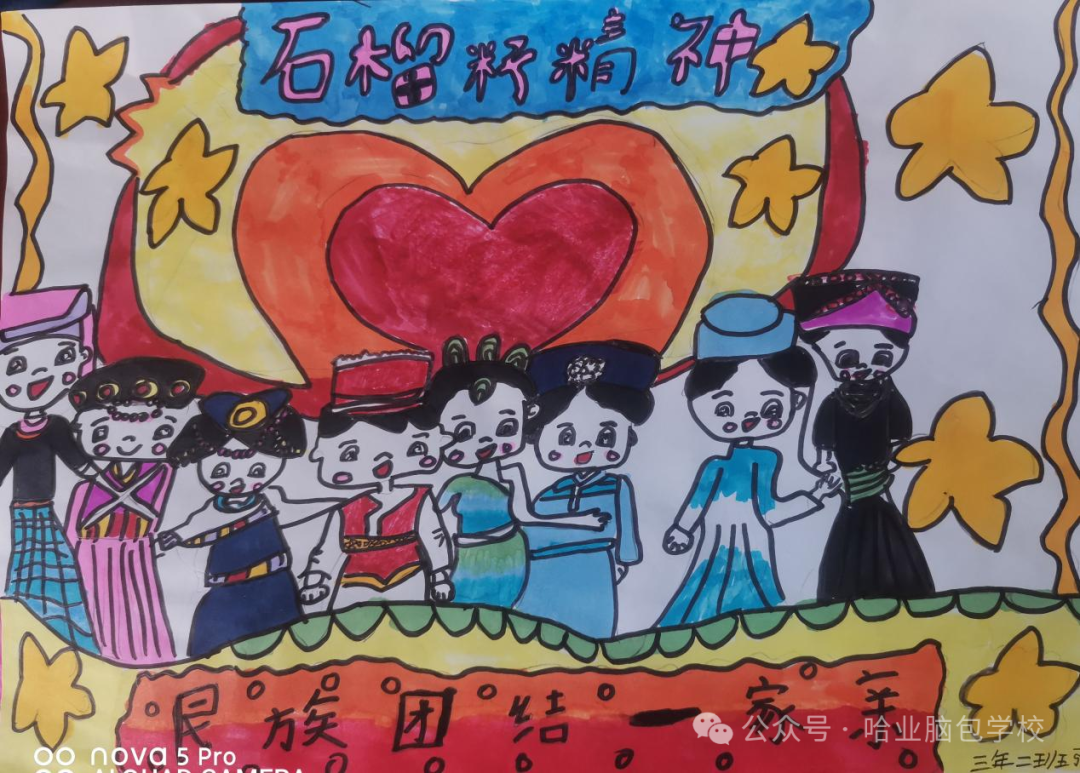 石榴籽精神
民族团结一家亲
公众号·哈业脑包学校
三年二班
nova 5 Pro
AI QUAD CAMERA